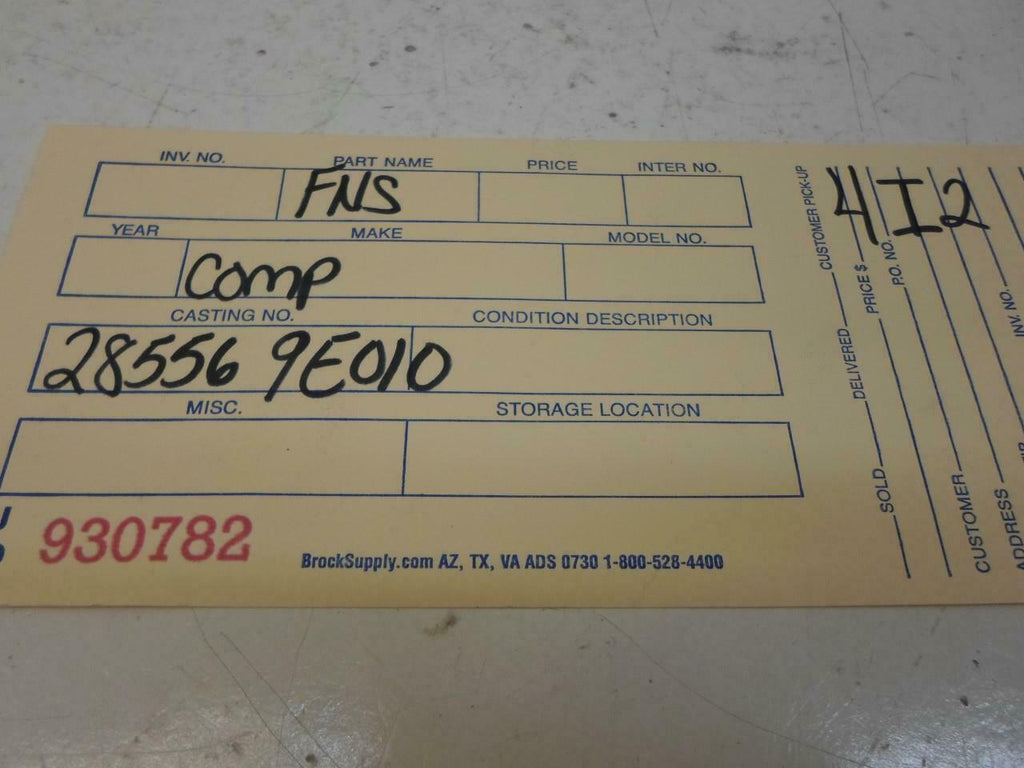 INV. NO. PART NAME PRICE INTER NO.
FNS
YEAR MAKE MODEL NO.
Comp
CASTING NO. CONDITION DESCRIPTION
28556 9E010
MISC. STORAGE LOCATION
930782
BrockSupply.com AZ, TX, VA ADS 0730 1-800-528-4400
4I2
SOLD DELIVERED CUSTOMER PICK-UP
PRICE $
P.O. NO.
CUSTOMER
ADDRESS
INV. NO.